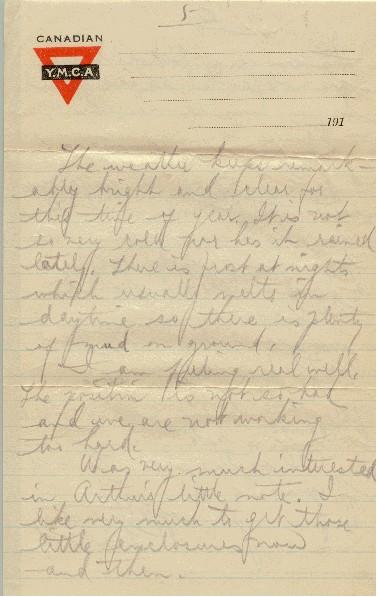 5
CANADIAN
Y.M.C.A.
191
The weather keeps remark-
ably bright and clear for
this time of year. It is not
so very cold nor has it rained
lately. There is frost at nights
which usually melts in
daytime so there is plenty
of mud on ground.
I am feeling real well.
The position is not so bad
and we are not working
too hard.
Was very much interested
in Arthur's little note. I
like very much to get those
little enclosures now
and then.